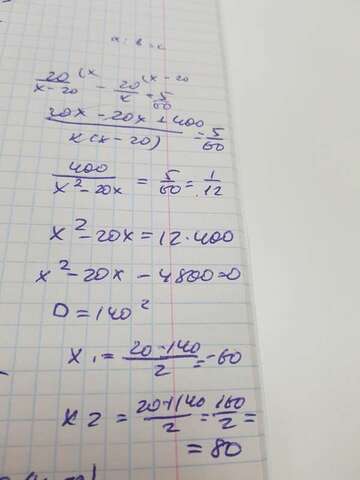 20/(x-20) (x - 20/x (x-20 = 5/60
(20x - 20x + 400)/(x(x-20)) = 5/60
400/(x²-20x) = 5/60 = 1/12
x²-20x = 12·400
x²-20x-4800=0
D = 140²
x1 = (20-140)/2 = -60
x2 = (20+140)/2 = 160/2 =
= 80